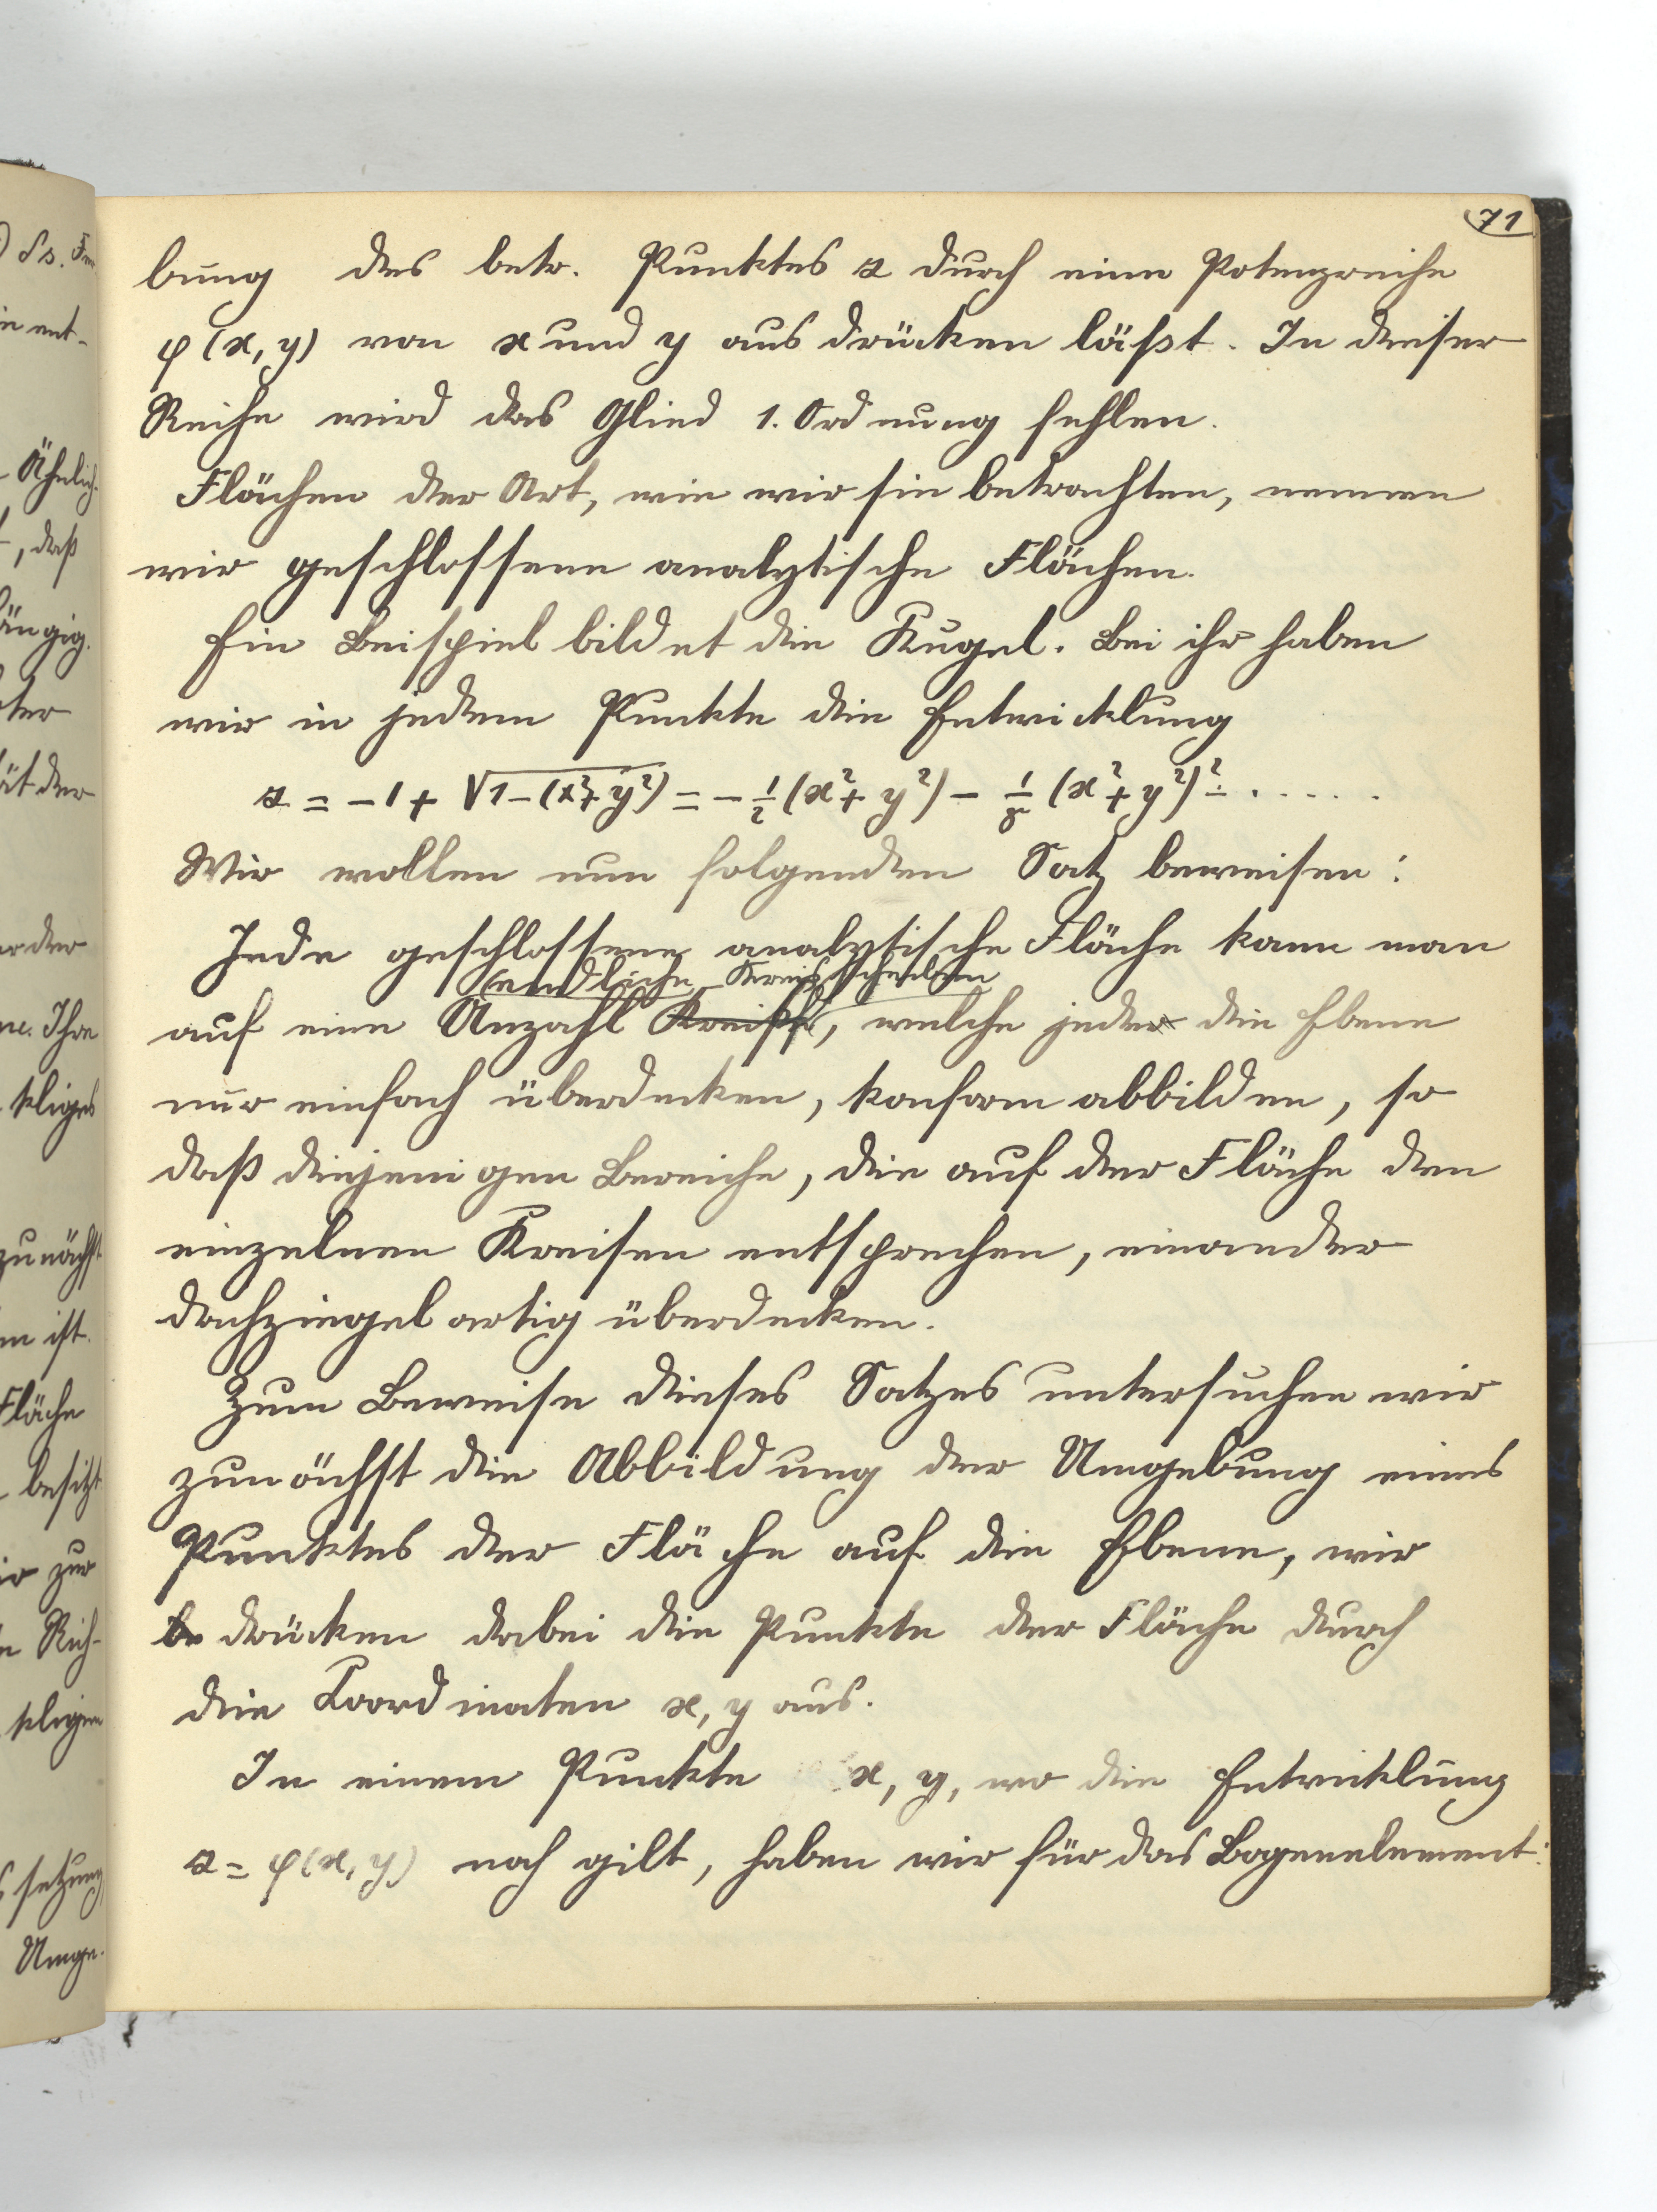 71
bung des betr. Punktes z durch eine Potenzreihe
φ(x, y) von x und y ausdrücken läßt. In dieser
Reihe wird das Glied 1. Ordnung fehlen.
Flächen der Art, wie wir sie betrachten, nennen
wir geschlossene analytische Flächen.
Ein Beispiel bildet die Kugel. Bei ihr haben
wir in jedem Punkte die Entwicklung
z = -1 + √1-(x²+y²) = -1/2 (x²+y²) - 1/8 (x²+y²)² - .....
Wir wollen nun folgenden Satz beweisen:
Jede geschlossene analytische Fläche kann man
endliche Kreisscheiben
auf eine Anzahl Kreise, welche jede die Ebene
nur einfach überdecken, konform abbilden, so
daß diejenigen Bereiche, die auf der Fläche den
einzelnen Kreisen entsprechen, einander
dachziegelartig überdecken.
Zum Beweise dieses Satzes untersuchen wir
zunächst die Abbildung der Umgebung eines
Punktes der Fläche auf die Ebene, wir
drücken dabei die Punkte der Fläche durch
die Koordinaten x, y aus.
In einem Punkte x, y, wo die Entwicklung
z = φ(x, y) noch gilt, haben wir für das Bogenelement:
Ähnlich-
, daß
ängig.
ät der
Ihre
zunächst
ist.
Fläche
besitzt
zur
Rich-
setzung
Umge-